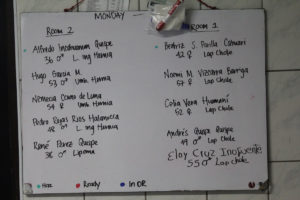 MONDAY
Room 2
Alfredo Incahuaman Quispe
36 ♂ L. ing Hernia
Hugo Garcia M.
53 ♂ Umb Hernia
Nemecia Ccoyo de Luna
54 ♀ Umb Hernia
Pedro Rojas Rios Halanocca
48 ♂ L ing Hernia
René Perez Quispe
36 ♂ Lipoma
Room 1
Beatriz S. Padilla
♀ Lap Chole
Noemi M. Vizcarra Barriga
57 ♀ Lap Chole
Celia Vera Huamaní
52 ♀ Lap Chole
Andrés Quispe Quispe
49 ♂ Lap Chole
Eloy Cruz
55 ♂ Lap Chole
Here
Ready
In OR